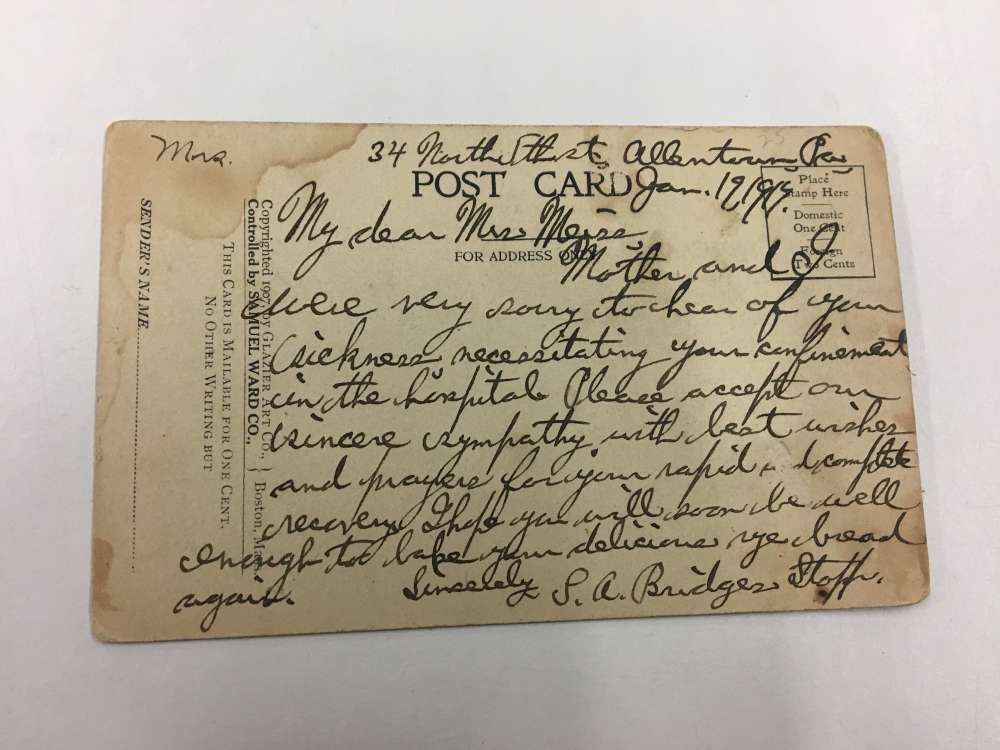 Mrs.
34 North St, Allentown Pa
POST CARD
Jan. 19
Place
Stamp Here
Domestic
One Cent
Foreign
Two Cents
My dear Mrs. Meiss
FOR ADDRESS ONLY
Mother and I
were very sorry to hear of your
sickness necessitating your confinement
in the hospital. Please accept our
sincere sympathy with best wishes
and prayers for your rapid & complete
recovery. I hope you will soon be well
enough to bake your delicious rye bread
again. Sincerely S. A. Bridges Stopp.
Copyrighted 1907, by GLAZIER ART CO., } Boston, Mass.
Controlled by SAMUEL WARD CO.,
THIS CARD IS MAILABLE FOR ONE CENT.
NO OTHER WRITING BUT
SENDER'S NAME